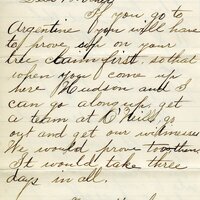 If you go to
Argentine you will have
to prove, up on your
tree claim first, so that
when you come up
here Hudson and I
can go along up, get
a team at O'Neills, go
out and get our witnesses
We would prove too then
It would take three
days in all.